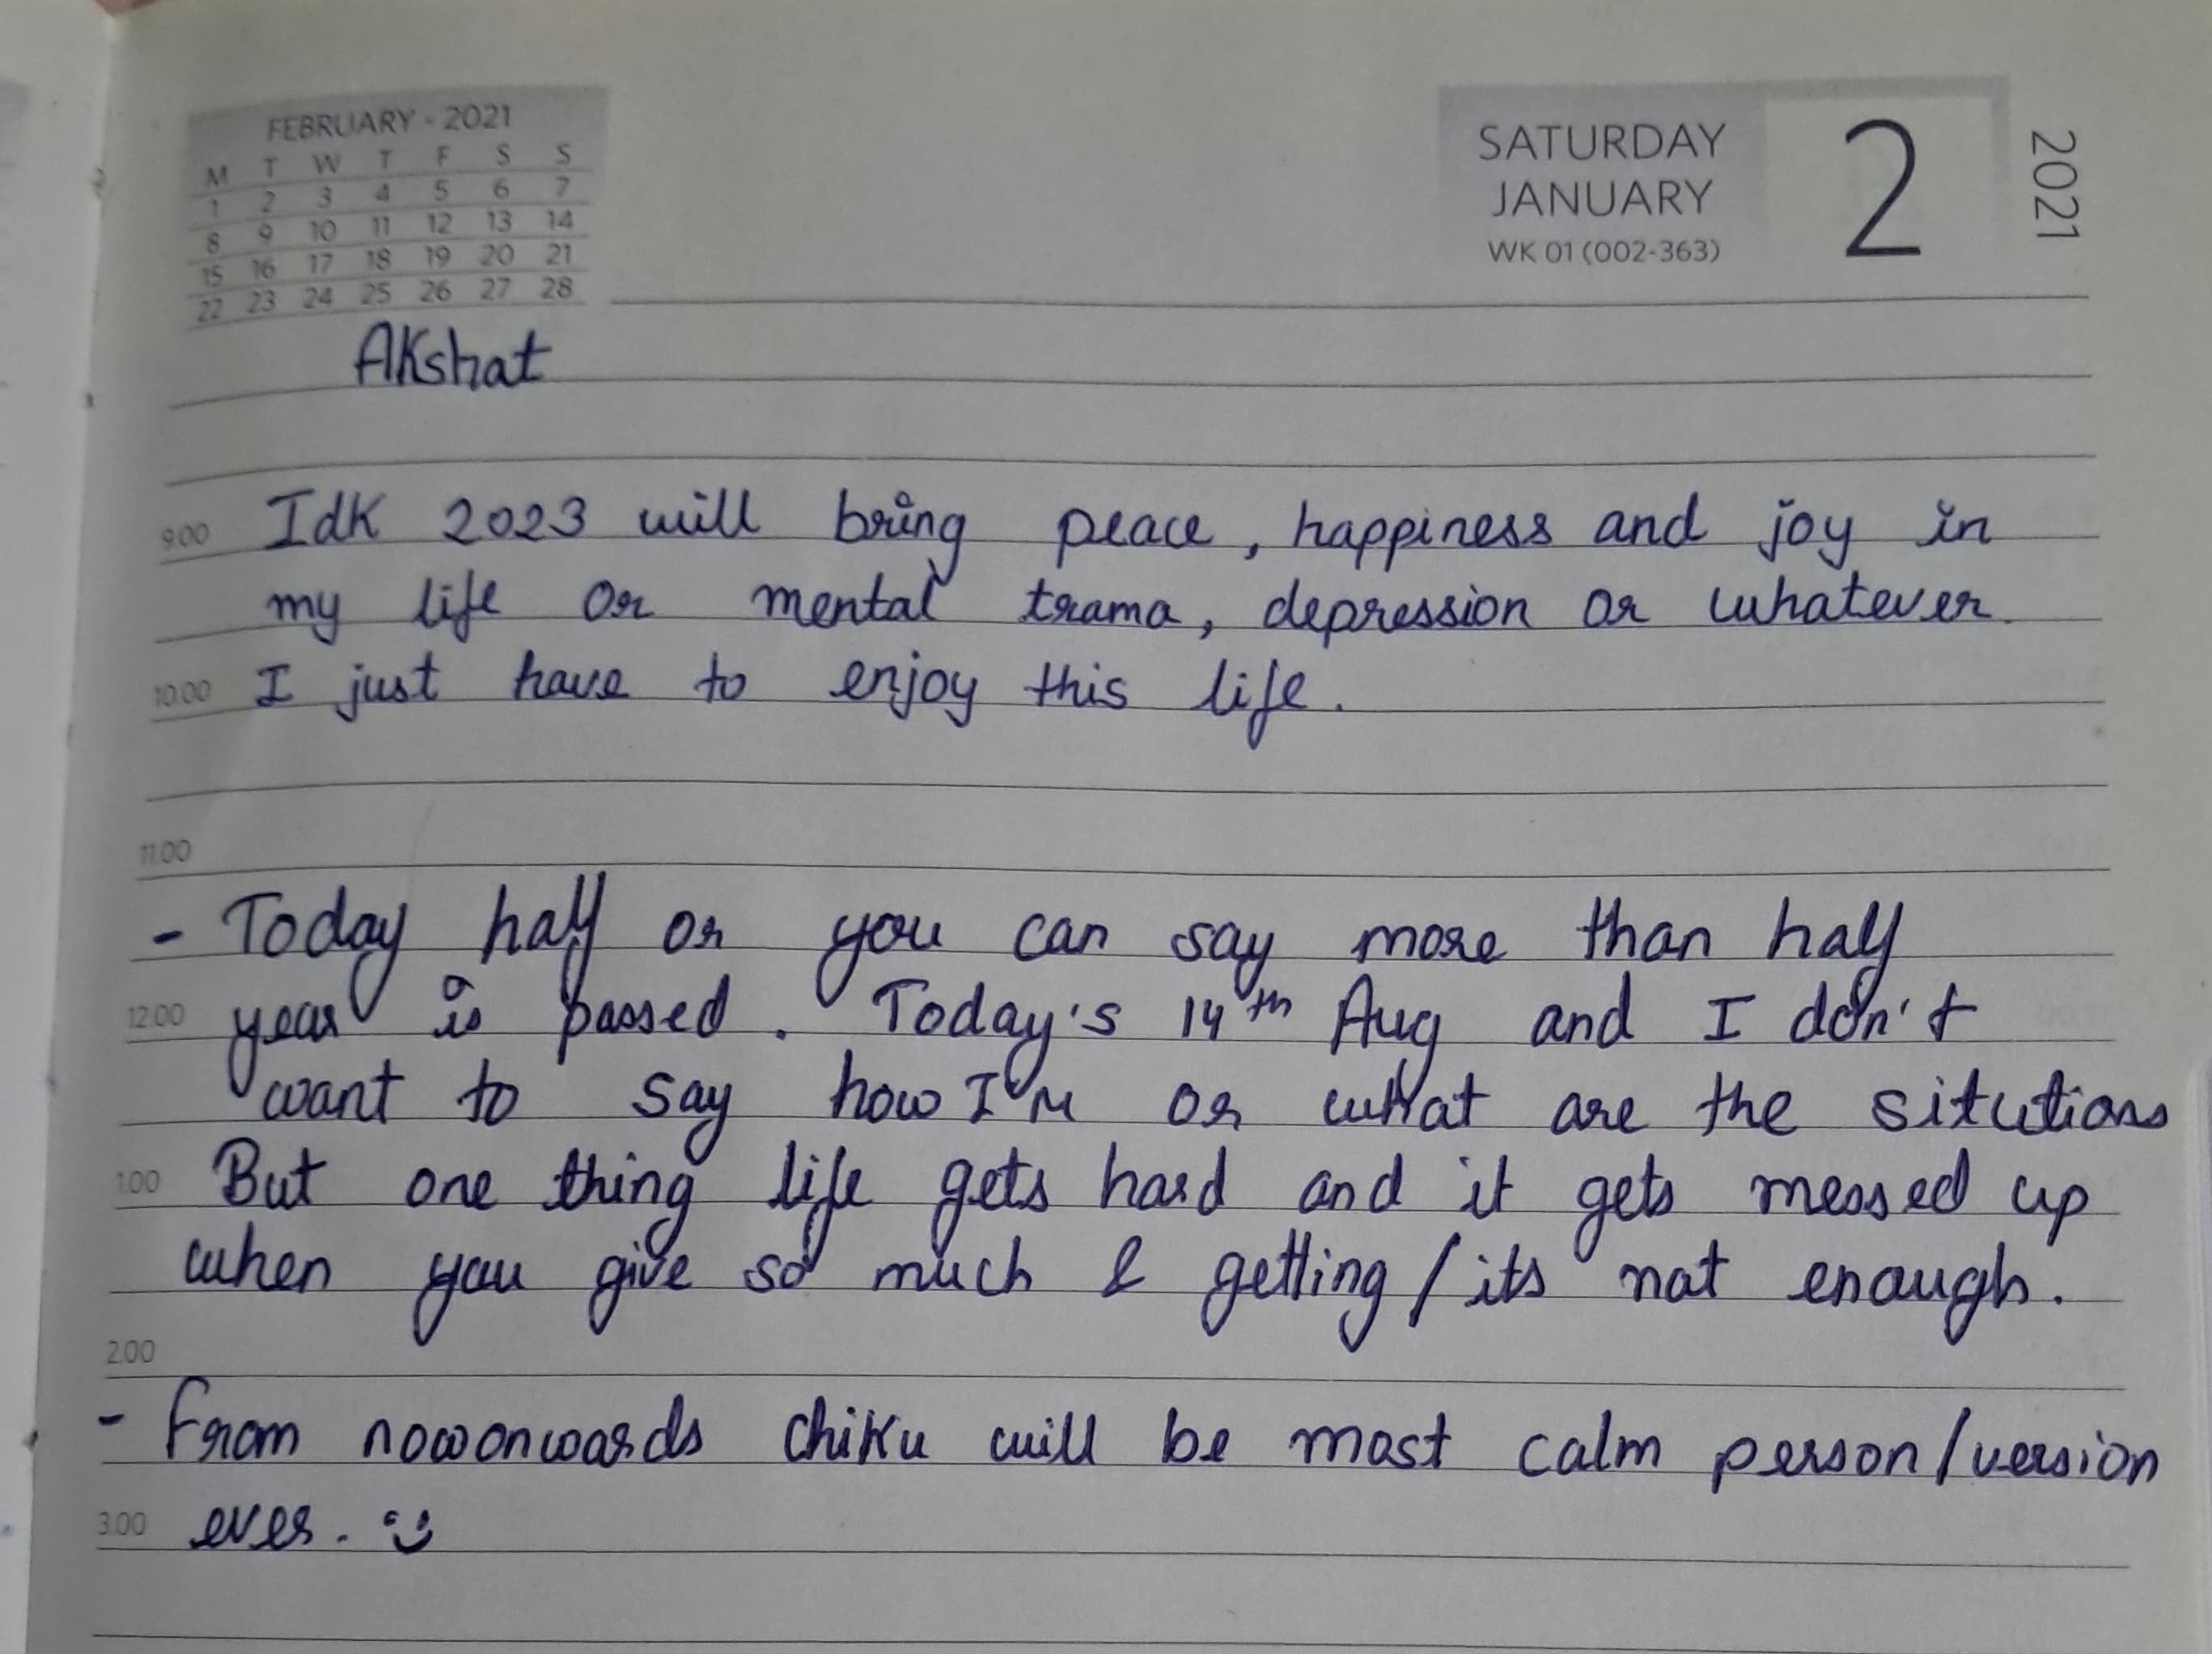 FEBRUARY - 2021
M T W T F S S
1 2 3 4 5 6 7
8 9 10 11 12 13 14
15 16 17 18 19 20 21
22 23 24 25 26 27 28
SATURDAY
JANUARY
WK 01 (002-363)
2
2021
Akshat
9.00 Idk 2023 will bring peace, happiness and joy in
my life or mental trama, depression or whatever.
10.00 I just have to enjoy this life.
11.00
- Today half or you can say more than half
12.00 year is passed. Today's 14th Aug and I don't
want to say how I'm or what are the situtions
1.00 But one thing life gets hard and it gets messed up
when you give so much & getting/its not enough.
2.00
- From nowonwards chiku will be most calm person/version
3.00 ever. :)